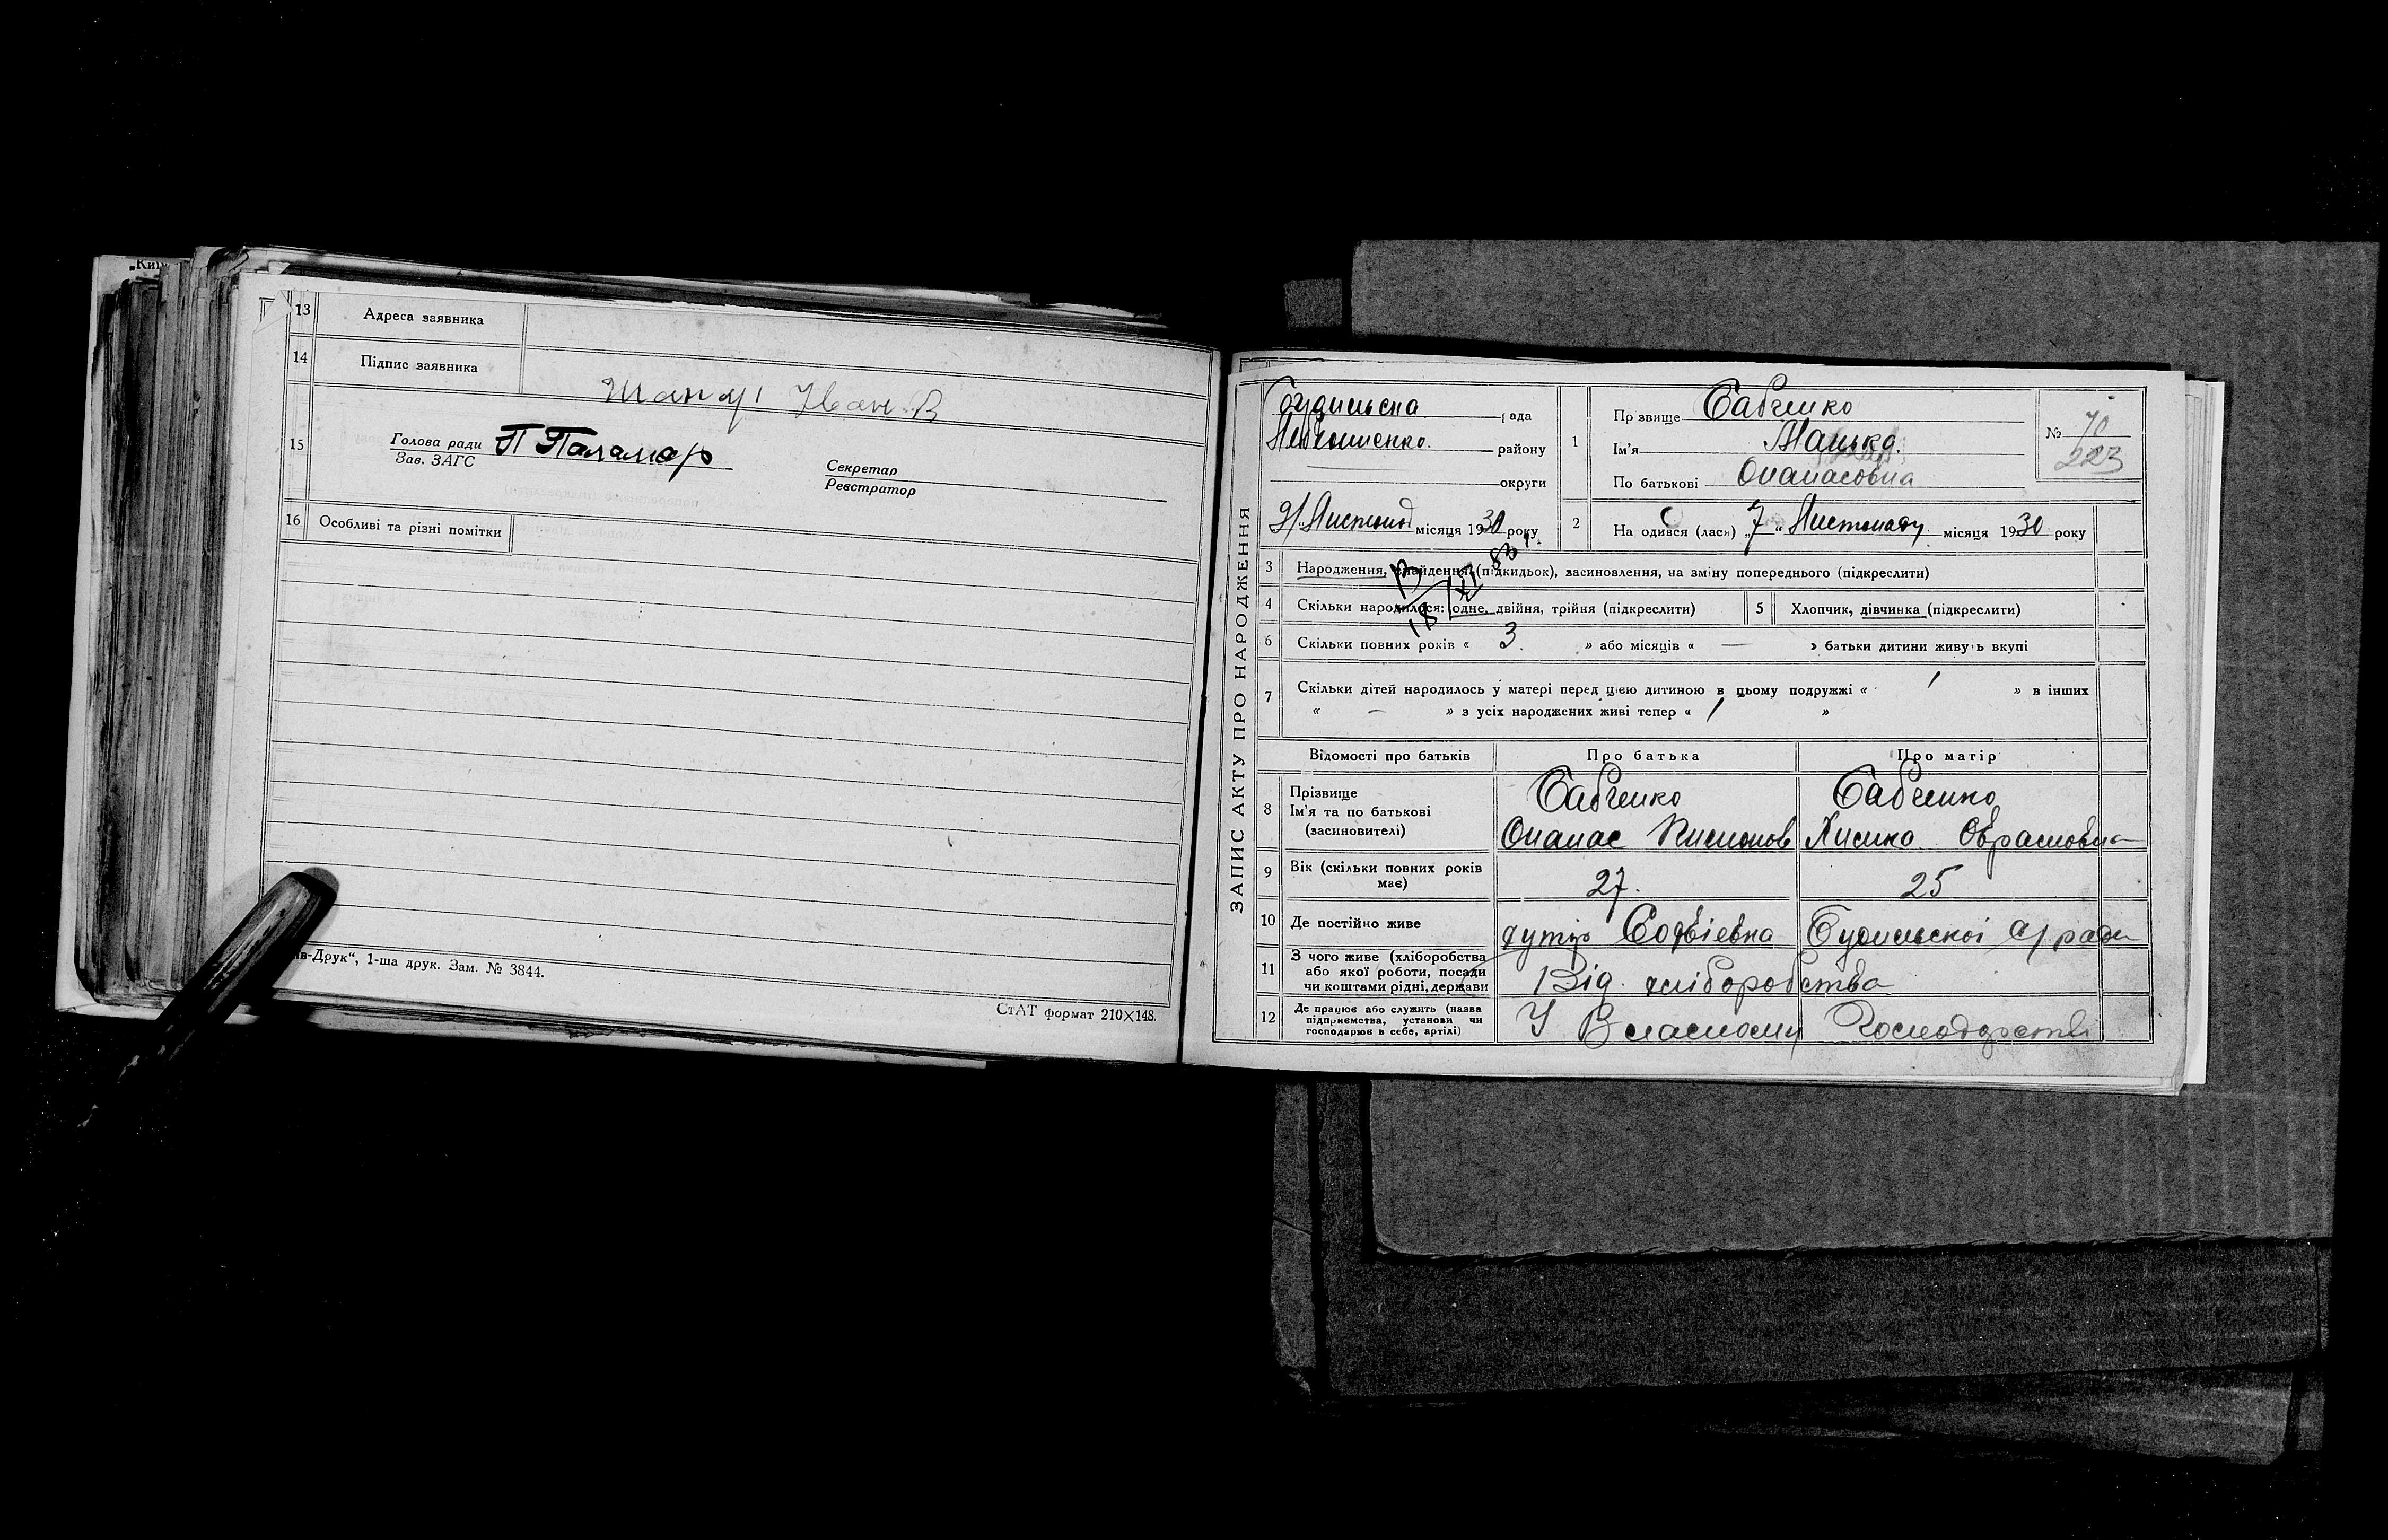 „Київ
13 Адреса заявника
14 Підпис заявника
Іван В
15 Голова ради П Паламар
Зав. ЗАГС
Секретар
Реєстратор
16 Особливі та різні помітки
ів-Друк“, 1-ша друк. Зам. № 3844.
СтАТ формат 210×148.
ЗАПИС АКТУ ПРО НАРОДЖЕННЯ
Будильська рада
району
округи
Листопад місяця 1930 року
1 Прізвище Бабченко
Ім'я Манька
По батькові Опанасовна
№ 70
223
2 На одився (лась) „7“ Листопаду місяця 1930 року
3 Народження, знайдення (підкидьок), засиновлення, на зміну попереднього (підкреслити)
4 Скільки народилося: одне, двійня, трійня (підкреслити)
5 Хлопчик, дівчинка (підкреслити)
6 Скільки повних років « 3 » або місяців « — » батьки дитини живуть вкупі
7 Скільки дітей народилось у матері перед цією дитиною в цьому подружжі « 1 » в інших
« — » з усіх народжених живі тепер « 1 »
Відомості про батьків Про батька Про матір
8 Прізвище
Ім'я та по батькові
(засиновителі)
Бабченко Бабченко
Опанас
9 Вік (скільки повних років має) 27. 25
10 Де постійно живе
хутір Будильскоі с/ ради
11 З чого живе (хліборобства
або якої роботи, посади
чи коштами рідні, держави
Від хліборобства
12 Де працює або служить (назва
підприємства, установи чи
господарює в себе, артілі)
У Власному Господарстві